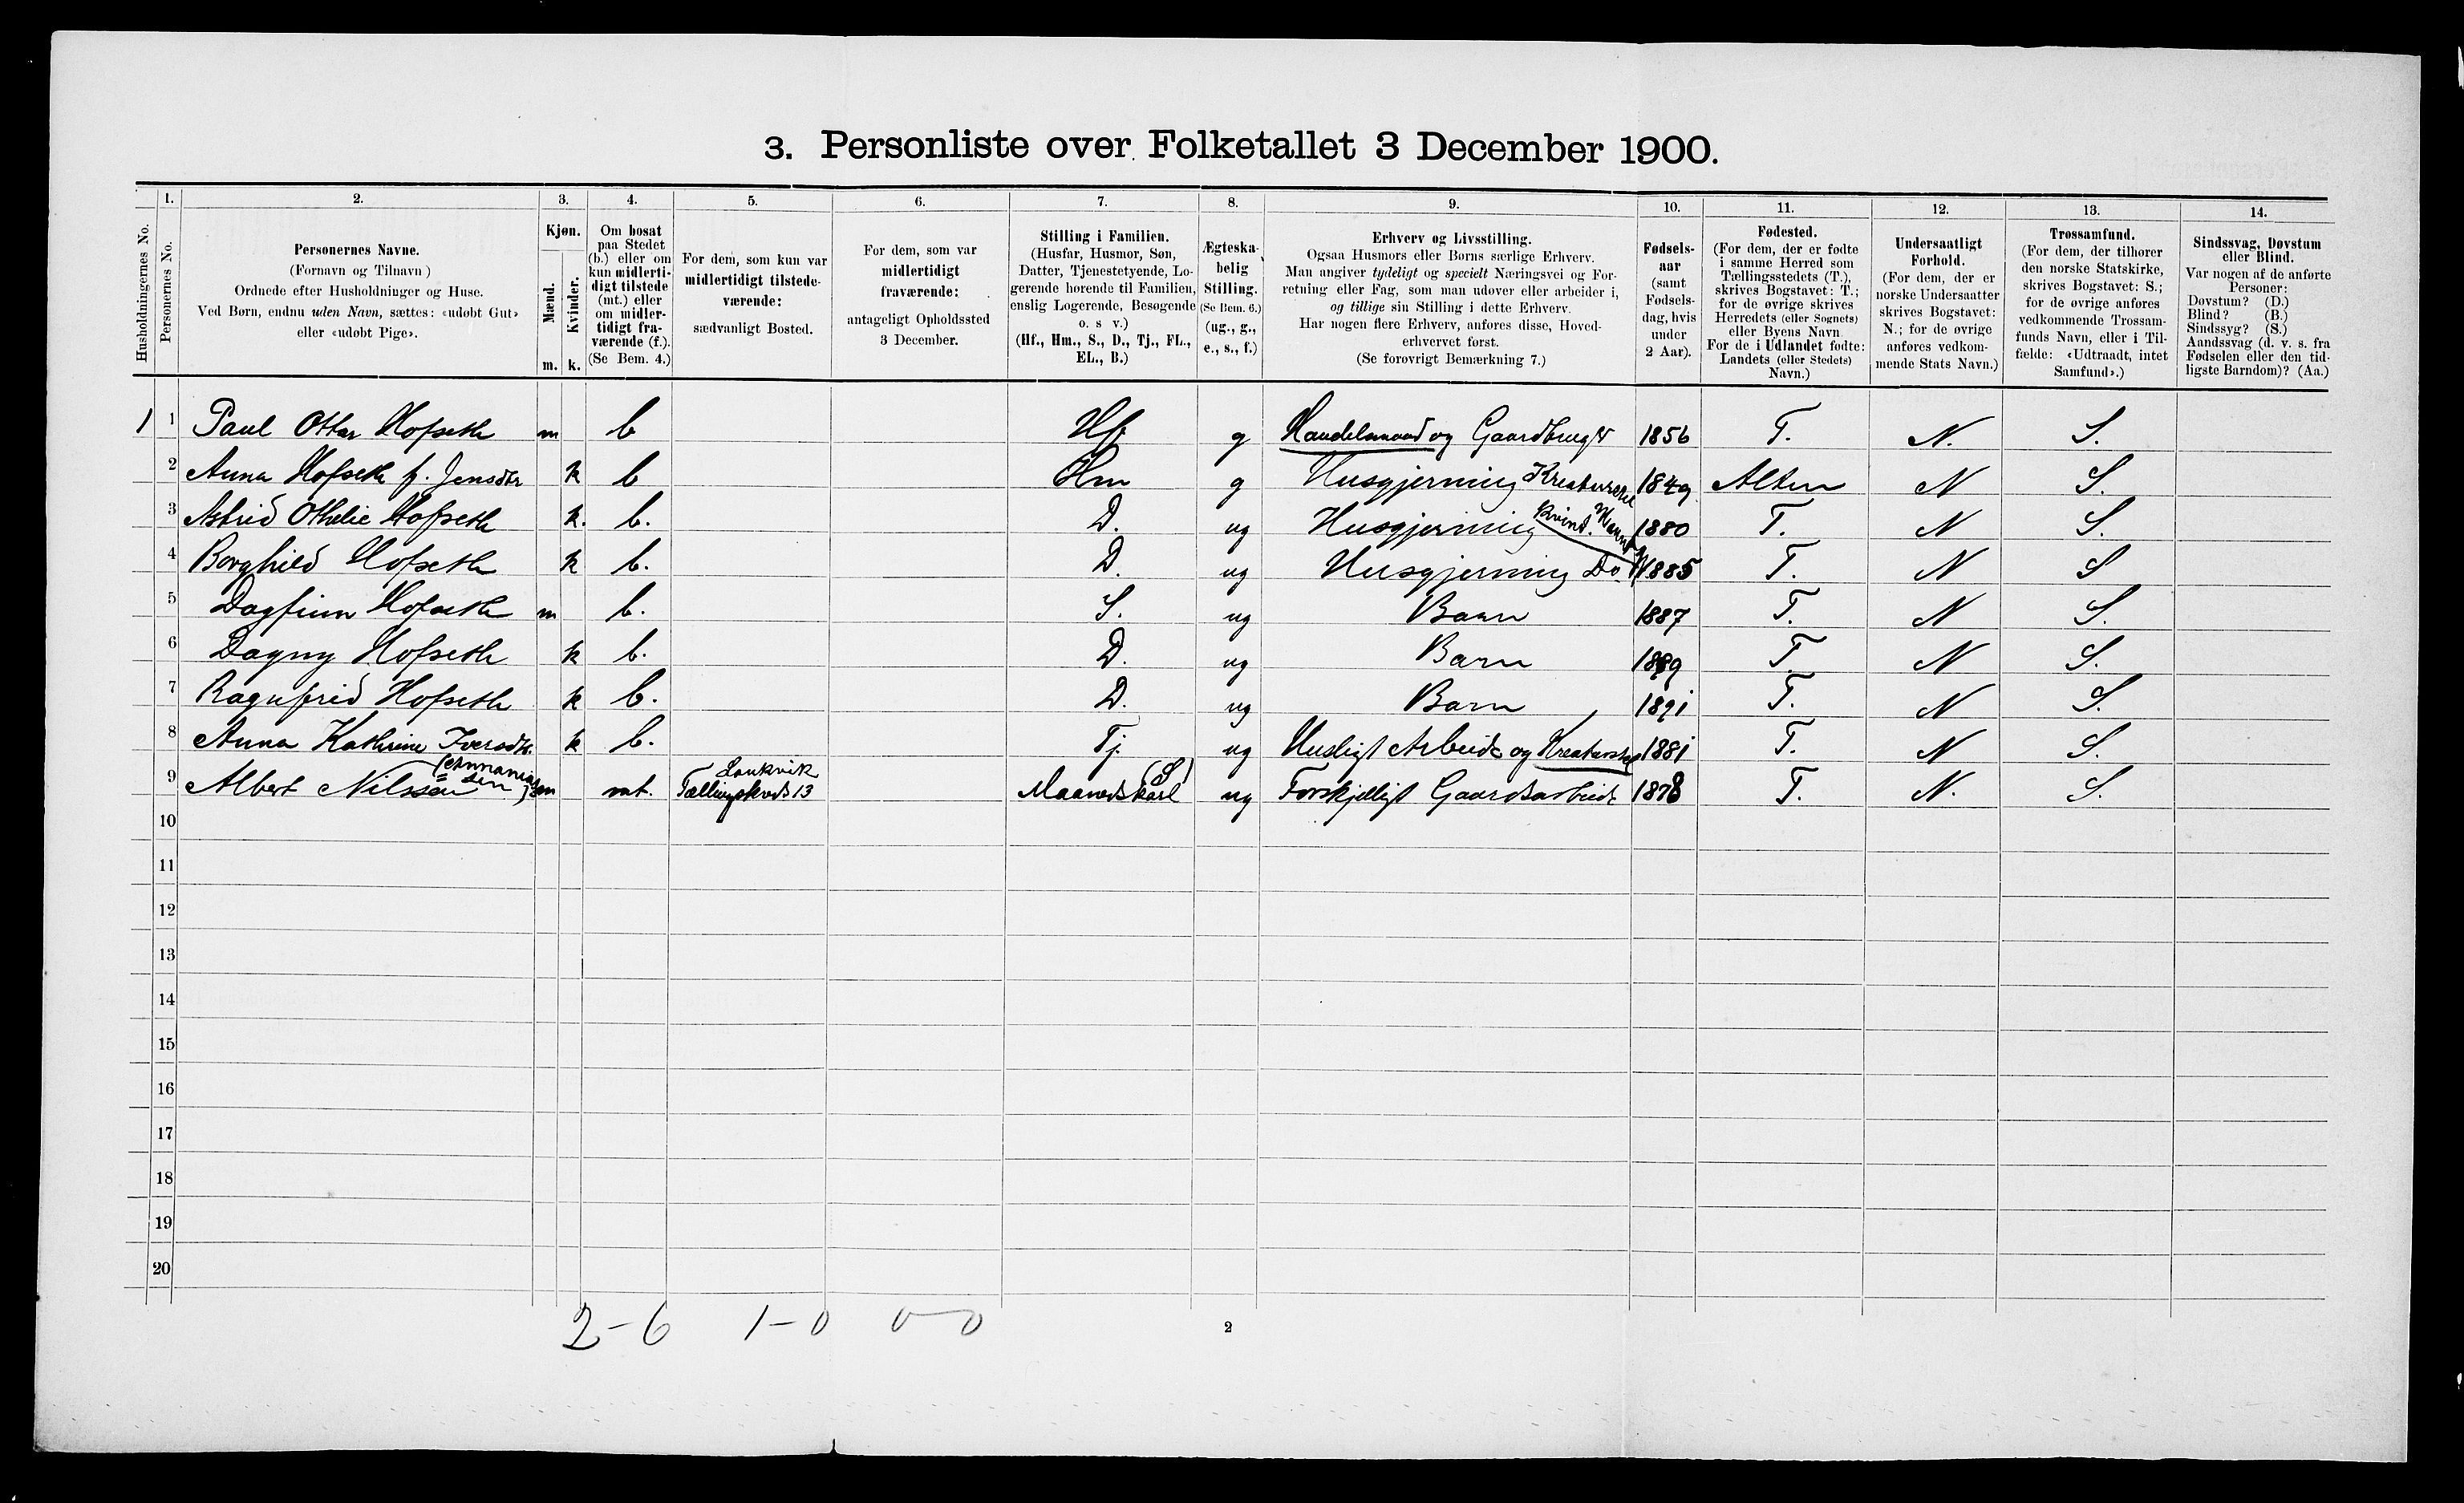 3. Personliste over Folketallet 3 December 1900.
Husholdningernes No.
1. Personernes No.
2. Personernes Navne.
(Fornavn og Tilnavn)
Ordnede efter Husholdninger og Huse.
Ved Børn, endnu uden Navn, sættes: «udøbt Gut»
eller «udøbt Pige».
3. Kjøn.
Mænd. Kvinder.
m. k.
4.
Om bosat
paa Stedet
(b.) eller om
kun midlerti-
digt tilstede
(mt.) eller
om midler-
tidigt fra-
værende (f.).
(Se Bem. 4.)
5.
For dem, som kun var
midlertidigt tilstede-
værende:
sædvanligt Bosted.
6.
For dem, som var
midlertidigt
fraværende:
antageligt Opholdssted
3 December.
7.
Stilling i Familien.
(Husfar, Husmor, Søn,
Datter, Tjenestetyende, Lo-
gerende hørende til Familien,
enslig Logerende, Besøgende
o. s v.)
(Hf., Hm., S., D., Tj., FL.,
EL., B.)
8.
Ægteska-
belig
Stilling.
(Se Bem. 6.)
(ug., g.,
e., s., f.)
9.
Erhverv og Livsstilling.
Ogsaa Husmors eller Børns særlige Erhverv.
Man angiver tydeligt og specielt Næringsvei og For-
retning eller Fag, som man udøver eller arbeider i,
og tillige sin Stilling i dette Erhverv.
Har nogen flere Erhverv, anføres disse, Hoved-
erhvervet først.
(Se forøvrigt Bemærkning 7.)
10.
Fødsels-
aar
(samt
Fødsels-
dag, hvis
under
2 Aar).
11.
Fødested.
(For dem, der er fødte
i samme Herred som
Tællingsstedets (T.),
skrives Bogstavet: T.;
for de øvrige skrives
Herredets (eller Sognets)
eller Byens Navn.
For de i Udlandet fødte:
Landets (eller Stedets)
Navn.)
12.
Undersaatligt
Forhold.
(For dem, der er
norske Undersaatter
skrives Bogstavet:
N.; for de øvrige
anføres vedkom-
mende Stats Navn.)
13.
Trossamfund.
(For dem, der tilhører
den norske Statskirke,
skrives Bogstavet: S.;
for de øvrige anføres
vedkommende Trossam-
funds Navn, eller i Til-
fælde: «Udtraadt, intet
Samfund».)
14.
Sindssvag, Døvstum
eller Blind.
Var nogen af de anførte
Personer:
Døvstum? (D.)
Blind? (B.)
Sindssyg? (S.)
Aandssvag (d. v. s. fra
Fødselen eller den tid-
ligste Barndom)? (Aa.)
1 1 Paul Ottar Hofseth m b Hf g Handelsmand og Gaardbruger 1856 T. N. S.
2 Anna Hofseth f. Jensdtr k b Hm g Husgjerning Kreaturstel 1849 Alten N S.
3 Astrid Othelie Hofseth k. b. D. ug Husgjerning Kvind. 1880 T. N S.
4 Borghild Hofseth k b. D. ug Husgjerning Do 1885 T. N S
5 Dagfinn Hofseth m b. S. ug Barn 1887 T. N S.
6 Dagny Hofseth k b. D. ug Barn 1889 T. N S.
7 Ragnfrid Hofseth k b. D. ug Barn 1891 T. N S.
8 Anna Kathrine Iversdtr. k b. Tj ug Husligt Arbeide og Kreaturstel 1881 T. N S.
9 Albert Nilssen m mt. Tællingskreds 13 Maanedskarl (S) ug Forskjelligt Gaardsarbeide 1878 T. N. S.
10
11
12
13
14
15
16
17
18
19
20
2-6 1-0 0-0
2